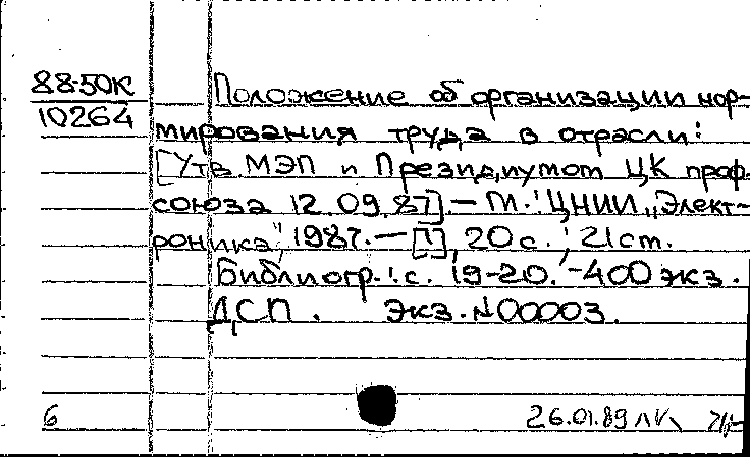 88-50К
10264
Положение об организации нор-
мирования труда в отрасли:
[Утв. МЭП и Президиумом ЦК проф-
союза 12.09.87] .— М. : ЦНИИ „Элект-
роника“, 1987. — [1], 20 с. ; 21 ст.
Библиогр. : с. 19-20. - 400 экз.
ДСП. Экз. № 00003.
6
26.01.89